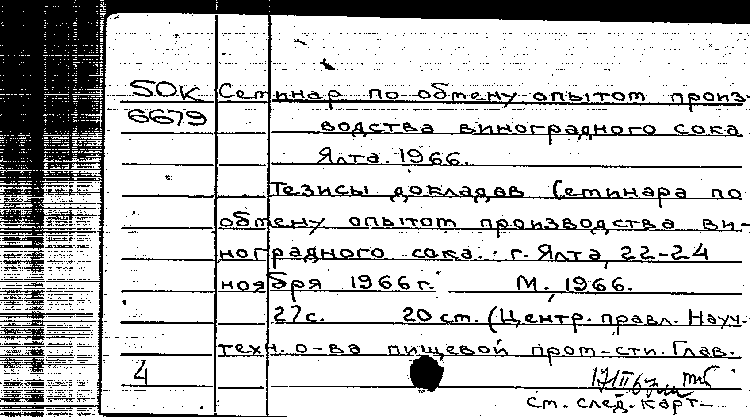 50К Семинар по обмену опытом произ-
6679 водства виноградного сока
Ялта. 1966.
Тезисы докладав Семинара по
обмену опытом производства ви-
ноградного сока. г. Ялта, 22-24
ноября 1966 г. М., 1966.
27 с. 20 см. (Центр. правл. Науч.-
техн. о-ва пищевой пром-сти. Глав.
4
см. след. карт